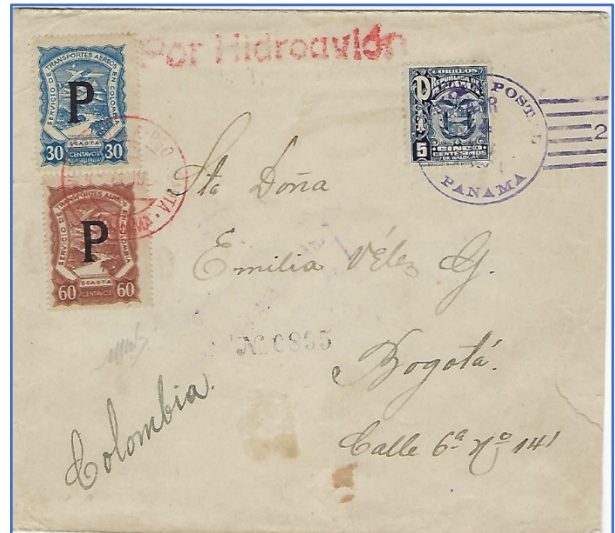 Por Hidroavión
SERVICIO DE TRANSPORTES AEREOS EN COLOMBIA
P
SCADTA
30 CENTAVOS 30
SERVICIO DE TRANSPORTES AEREOS EN COLOMBIA
P
SCADTA
60 CENTAVOS 60
CORREOS
REPUBLICA DE
PANAMA
5 CINCO 5
CENTESIMOS
DE BALBOA
POST
PANAMA
2
Sta Doña
Emilia Vélez G.
Bogotá.
Calle 6ª Nº 141
Colombia.